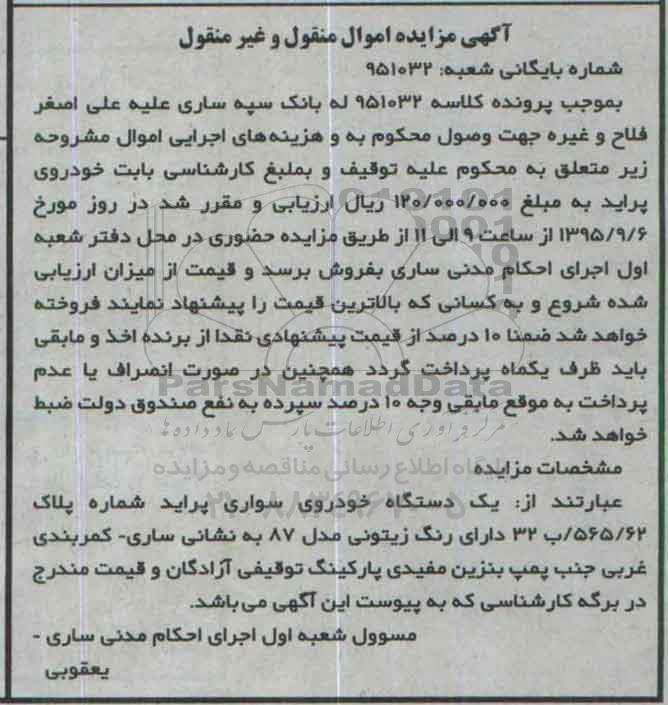 آگهی مزایده اموال منقول و غیر منقول
شماره بایگانی شعبه: ۹۵۱۰۳۲
بموجب پرونده کلاسه ۹۵۱۰۳۲ له بانک سپه ساری علیه علی اصغر
فلاح و غیره جهت وصول محکوم به و هزینه‌های اجرایی اموال مشروحه
زیر متعلق به محکوم علیه توقیف و بملبغ کارشناسی بابت خودروی
پراید به مبلغ ۱۲۰/۰۰۰/۰۰۰ ریال ارزیابی و مقرر شد در روز مورخ
۱۳۹۵/۹/۶ از ساعت ۹ الی ۱۱ از طریق مزایده حضوری در محل دفتر شعبه
اول اجرای احکام مدنی ساری بفروش برسد و قیمت از میزان ارزیابی
شده شروع و به کسانی که بالاترین قیمت را پیشنهاد نمایند فروخته
خواهد شد ضمنا ۱۰ درصد از قیمت پیشنهادی نقدا از برنده اخذ و مابقی
باید ظرف یکماه پرداخت گردد همچنین در صورت انصراف یا عدم
ParsNamadData
پرداخت به موقع مابقی وجه ۱۰ درصد سپرده به نفع صندوق دولت ضبط
مرکز فرآوری اطلاعات پارس نماد داده ها
خواهد شد.
پایگاه اطلاع رسانی مناقصه و مزایده
مشخصات مزایده
عبارتند از: یک دستگاه خودروی سواری پراید شماره پلاک
۵۶۵/۶۲/ب ۳۲ دارای رنگ زیتونی مدل ۸۷ به نشانی ساری- کمربندی
غربی جنب پمپ بنزین مفیدی پارکینگ توقیفی آزادگان و قیمت مندرج
در برگه کارشناسی که به پیوست این آگهی می‌باشد.
مسوول شعبه اول اجرای احکام مدنی ساری -
یعقوبی